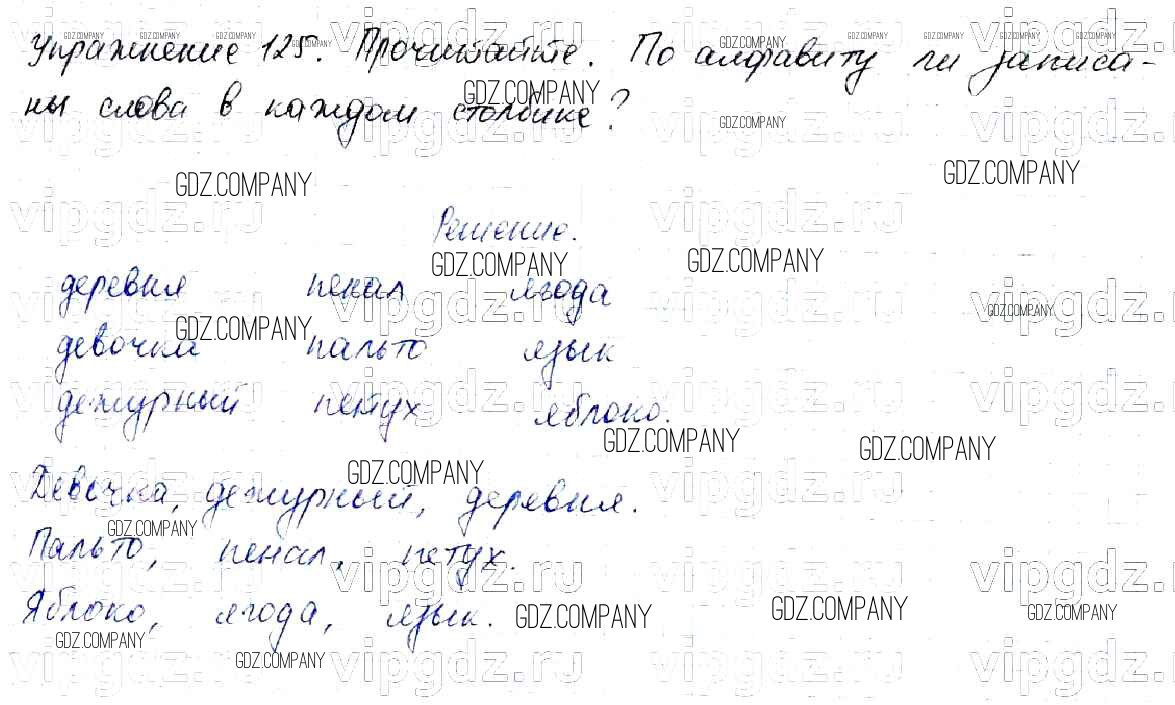 Упражнение 125. Прочитайте. По алфавиту ли записа-
ны слова в каждом столбике?
Решение.
деревня пенал ягода
девочка пальто язык
дежурный петух яблоко.
Девочка, дежурный, деревня.
Пальто, пенал, петух.
Яблоко, ягода, язык.
GDZ.COMPANY
vipgdz.ru